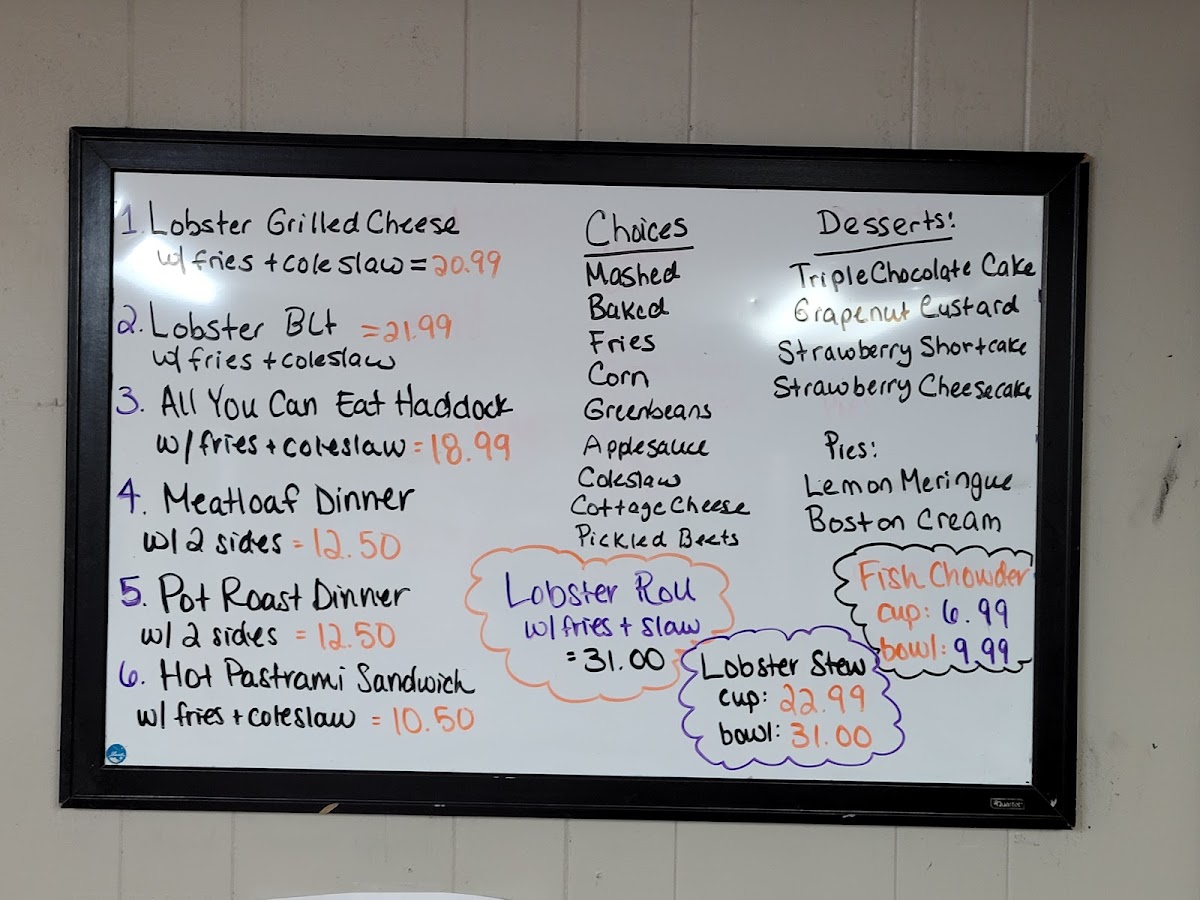 1. Lobster Grilled Cheese
w/ fries + coleslaw = 20.99
2. Lobster BLt = 21.99
w/ fries + coleslaw
3. All You Can Eat Haddock
w/ fries + coleslaw = 18.99
4. Meatloaf Dinner
w/ 2 sides = 12.50
5. Pot Roast Dinner
w/ 2 sides = 12.50
6. Hot Pastrami Sandwich
w/ fries + coleslaw = 10.50
Choices
Mashed
Baked
Fries
Corn
Greenbeans
Applesauce
Coleslaw
Cottage Cheese
Pickled Beets
Desserts:
Triple Chocolate Cake
Grapenut Custard
Strawberry Shortcake
Strawberry Cheesecake
Pies:
Lemon Meringue
Boston Cream
Lobster Roll
w/ fries + slaw
= 31.00
Lobster Stew
cup: 22.99
bowl: 31.00
Fish Chowder
cup: 6.99
bowl: 9.99
Quartet